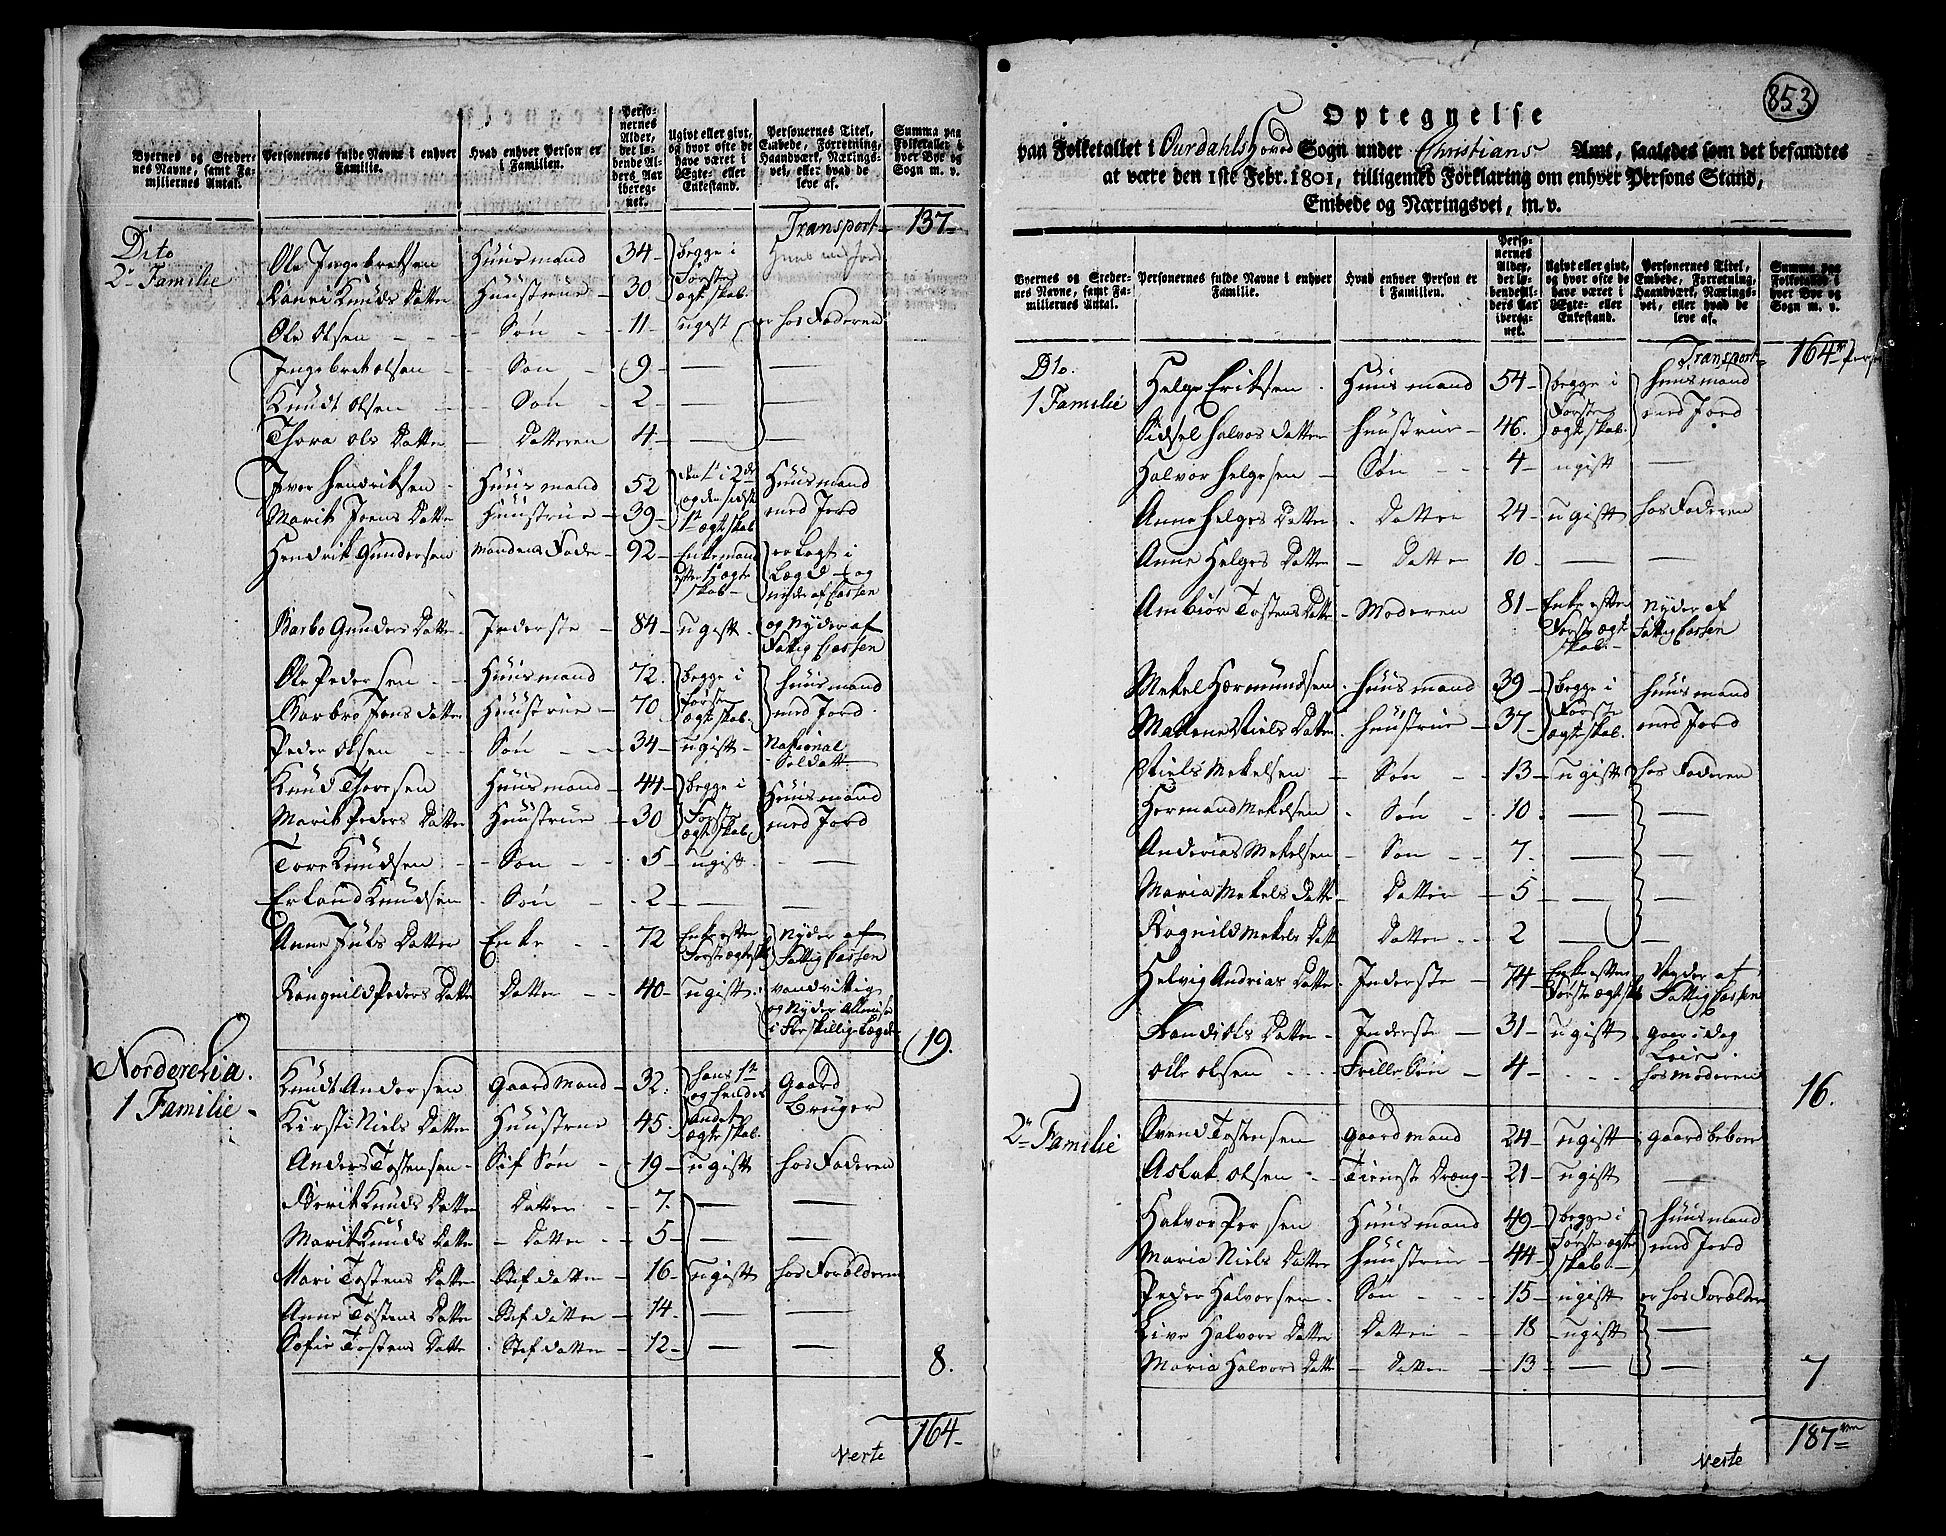 Byernes og Stedernes Navne, samt Familiernes Antal.
Personernes fulde Navne i enhver Familie.
Hvad enhver Person er i Familien.
Personernes Alder, det løbende Alders Aar iberegnet.
Ugivt eller givt, og hvor ofte de have været i Ægte- eller Enkestand.
Personernes Titel, Embede, Forretning, Haandværk, Næringsvei, eller hvad de leve af.
Summa paa Folketallet i hver Bye og Sogn m. v.
Transport 137
Dito
2 Familie
Ole Ingebretsen Huusmand 34 begge i Første ægteskab
Ranri Knuds Datter Huustrue 30
Ole Olsen Søn 11 ugift er hos Faderen
Ingebret Olsen Søn 9
Knudt Olsen Søn 2
Thora Ols Datter Datteren 4
Iver Hendriksen Huusmand 52 den 1te i 2det og den sidste Huusmand
Marit Joens Datter Huustrue 39 1te ægteskab med Jord
Hendrik Gundersen Mandens Fader 92 Enkemand efter 1te ægteskab er lagt i Lægd og nyder af Cassen
Barbo Gunders Datter Inderste 84 ugift og Nyder af Fattig Cassen
Ole Pedersen Huusmand 72 begge i Første ægteskab Huusmand
Barbro Jons Datter Huustrue 70 med Jord
Peder Olsen Søn 34 ugift National Soldat
Knud Thoresen Huusmand 44 begge i Første ægteskab Huusmand
Marit Peders Datter Huustrue 30 med Jord
Tore Knudsen Søn 5 ugift
Erland Knudsen Søn 2
Anne Juls Datter Enke 72 Enke efter Første ægteskab Nyder af Fattig Cassen
Rangnild Peders Datter Datter 40 ugift vandvittig og Nyder Almisse i Forskillig Lægd
19.
Norderelia.
1 Familie
Knudt Andersen Gaardmand 32 hans 1te og hendes Gaard
Kirsti Niels Datter Huustrue 45 andet ægteskab Bruger
Anders Tostensen Stif Søn 19 ugift hos Faderen
Berit Knuds Datter Datter 7
Marit Knuds Datter Datter 5
Mari Tostens Datter Stifdatter 16 ugift hos Forældrene
Anne Tostens Datter Stifdatter 14
Sofie Tostens Datter Stifdatter 12
8.
164
Verte
853
Optegnelse
paa Folketallet i Ourdahls Hoved Sogn under Christians Amt, saaledes som det befandtes
at være den 1ste Febr. 1801, tilligemed Forklaring om enhver Persons Stand,
Embede og Næringsvei, m. v.
Byernes og Stedernes Navne, samt Familiernes Antal.
Personernes fulde Navne i enhver Familie.
Hvad enhver Person er i Familien.
Personernes Alder, det løbende Alders Aar iberegnet.
Ugivt eller givt, og hvor ofte de have været i Ægte- eller Enkestand.
Personernes Titel, Embede, Forretning, Haandværk, Næringsvei, eller hvad de leve af.
Summa paa Folketallet i hver Bye og Sogn m. v.
Transport 164 Pers
Dto.
1 Familie
Helge Eriksen Huusmand 54 begge i Første ægteskab Huusmand
Sidsel Halvors Datter Huustrue 46 med Jord
Halvor Helgesen Søn 4 ugift
Anne Helges Datter Datter 24 ugift hos Faderen
Anne Helges Datter Datter 10
Ambiør Tostens Datter Moderen 81 Enke efter Første ægteskab Nyder af Fattig Cassen
Mekel Hermundsen Huusmand 39 begge i Første ægteskab Huusmand
Malene Niels Datter Huustrue 37 med Jord
Niels Mekelsen Søn 13 ugift hos Faderen
Hermand Mekelsen Søn 10
Anderias Mekelsen Søn 7
Maria Mekels Datter Datter 5
Ragnild Mekels Datt Datter 2
Helvig Andrias Datter Inderste 74 Enke efter Første ægteskab Nyder af Fattig Cassen
Randi Ols Datter Inderste 31 ugift Gaar i Dag Leie
Olle Olsen Frillebørn 4 hos Moderen
16.
2 Familie
Svend Tostensen Gaardmand 24 ugift Gaardbeboer
Aslak Olsen Tieneste Dreng 21 ugift
Halvor Persen Huusmand 49 begge i Første ægteskab Huusmand
Maria Niels Datter Huustrue 44 med Jord
Peder Halvorsen Søn 15 ugift er hos Forældre
Live Halvors Datter Datter 18 ugift
Maria Halvors Datte Datter 13
7
187
Verte